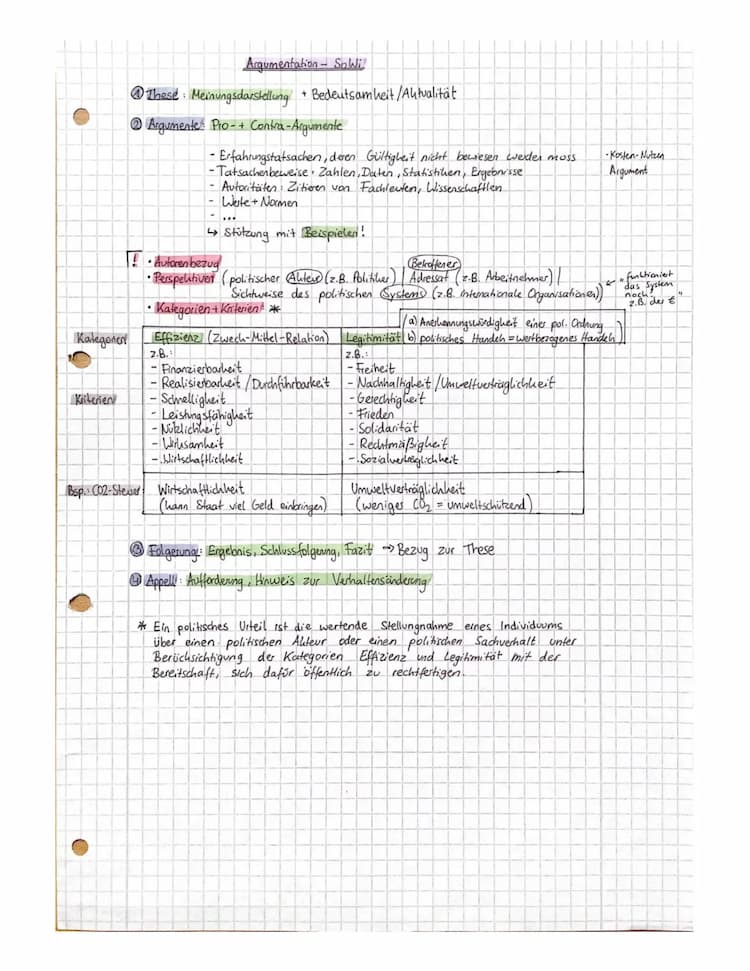 Argumentation – SoWi
① These: Meinungsdarstellung + Bedeutsamheit/Aktualität
② Argumente: Pro- + Contra-Argumente
- Erfahrungstatsachen, deren Gültigkeit nicht bewiesen werden muss
- Tatsachenbeweise: Zahlen, Daten, Statistiken, Ergebnisse
- Autoritäten: Zitieren von Fachleuten, Wissenschaftlern
- Werte + Normen
- ...
↳ Stützung mit Beispielen!
- Kosten-Nutzen
Argument
! • Autorenbezug
• Perspektiven (politischer Akteur (z.B. Politiker) | Betroffener Adressat (z.B. Arbeitnehmer) |
Sichtweise des politischen Systems (z.B. Internationale Organisationen))
← "funktioniert
das System
noch"
z.B. der €
• Kategorien + Kriterien *
Kategorien
Effizienz (Zweck-Mittel-Relation)
Legitimität
(a) Anerkennungswürdigkeit einer pol. Ordnung
b) politisches Handeln = wertbezogenes Handeln
Kriterien
z.B.:
- Finanzierbarkeit
- Realisierbarkeit / Durchführbarkeit
- Schnelligkeit
- Leistungsfähigkeit
- Nützlichkeit
- Wirksamkeit
- Wirtschaftlichkeit
z.B.:
- Freiheit
- Nachhaltigkeit / Umweltverträglichkeit
- Gerechtigkeit
- Frieden
- Solidarität
- Rechtmäßigkeit
- Sozialverträglichkeit
Bsp.: CO2-Steuer
Wirtschaftlichkeit
(kann Staat viel Geld einbringen)
Umweltverträglichkeit
(weniger CO₂ = umweltschützend)
③ Folgerung: Ergebnis, Schlussfolgerung, Fazit → Bezug zur These
④ Appell: Aufforderung, Hinweis zur Verhaltensänderung
* Ein politisches Urteil ist die wertende Stellungnahme eines Individuums
über einen politischen Akteur oder einen politischen Sachverhalt unter
Berücksichtigung der Kategorien Effizienz und Legitimität mit der
Bereitschaft, sich dafür öffentlich zu rechtfertigen.